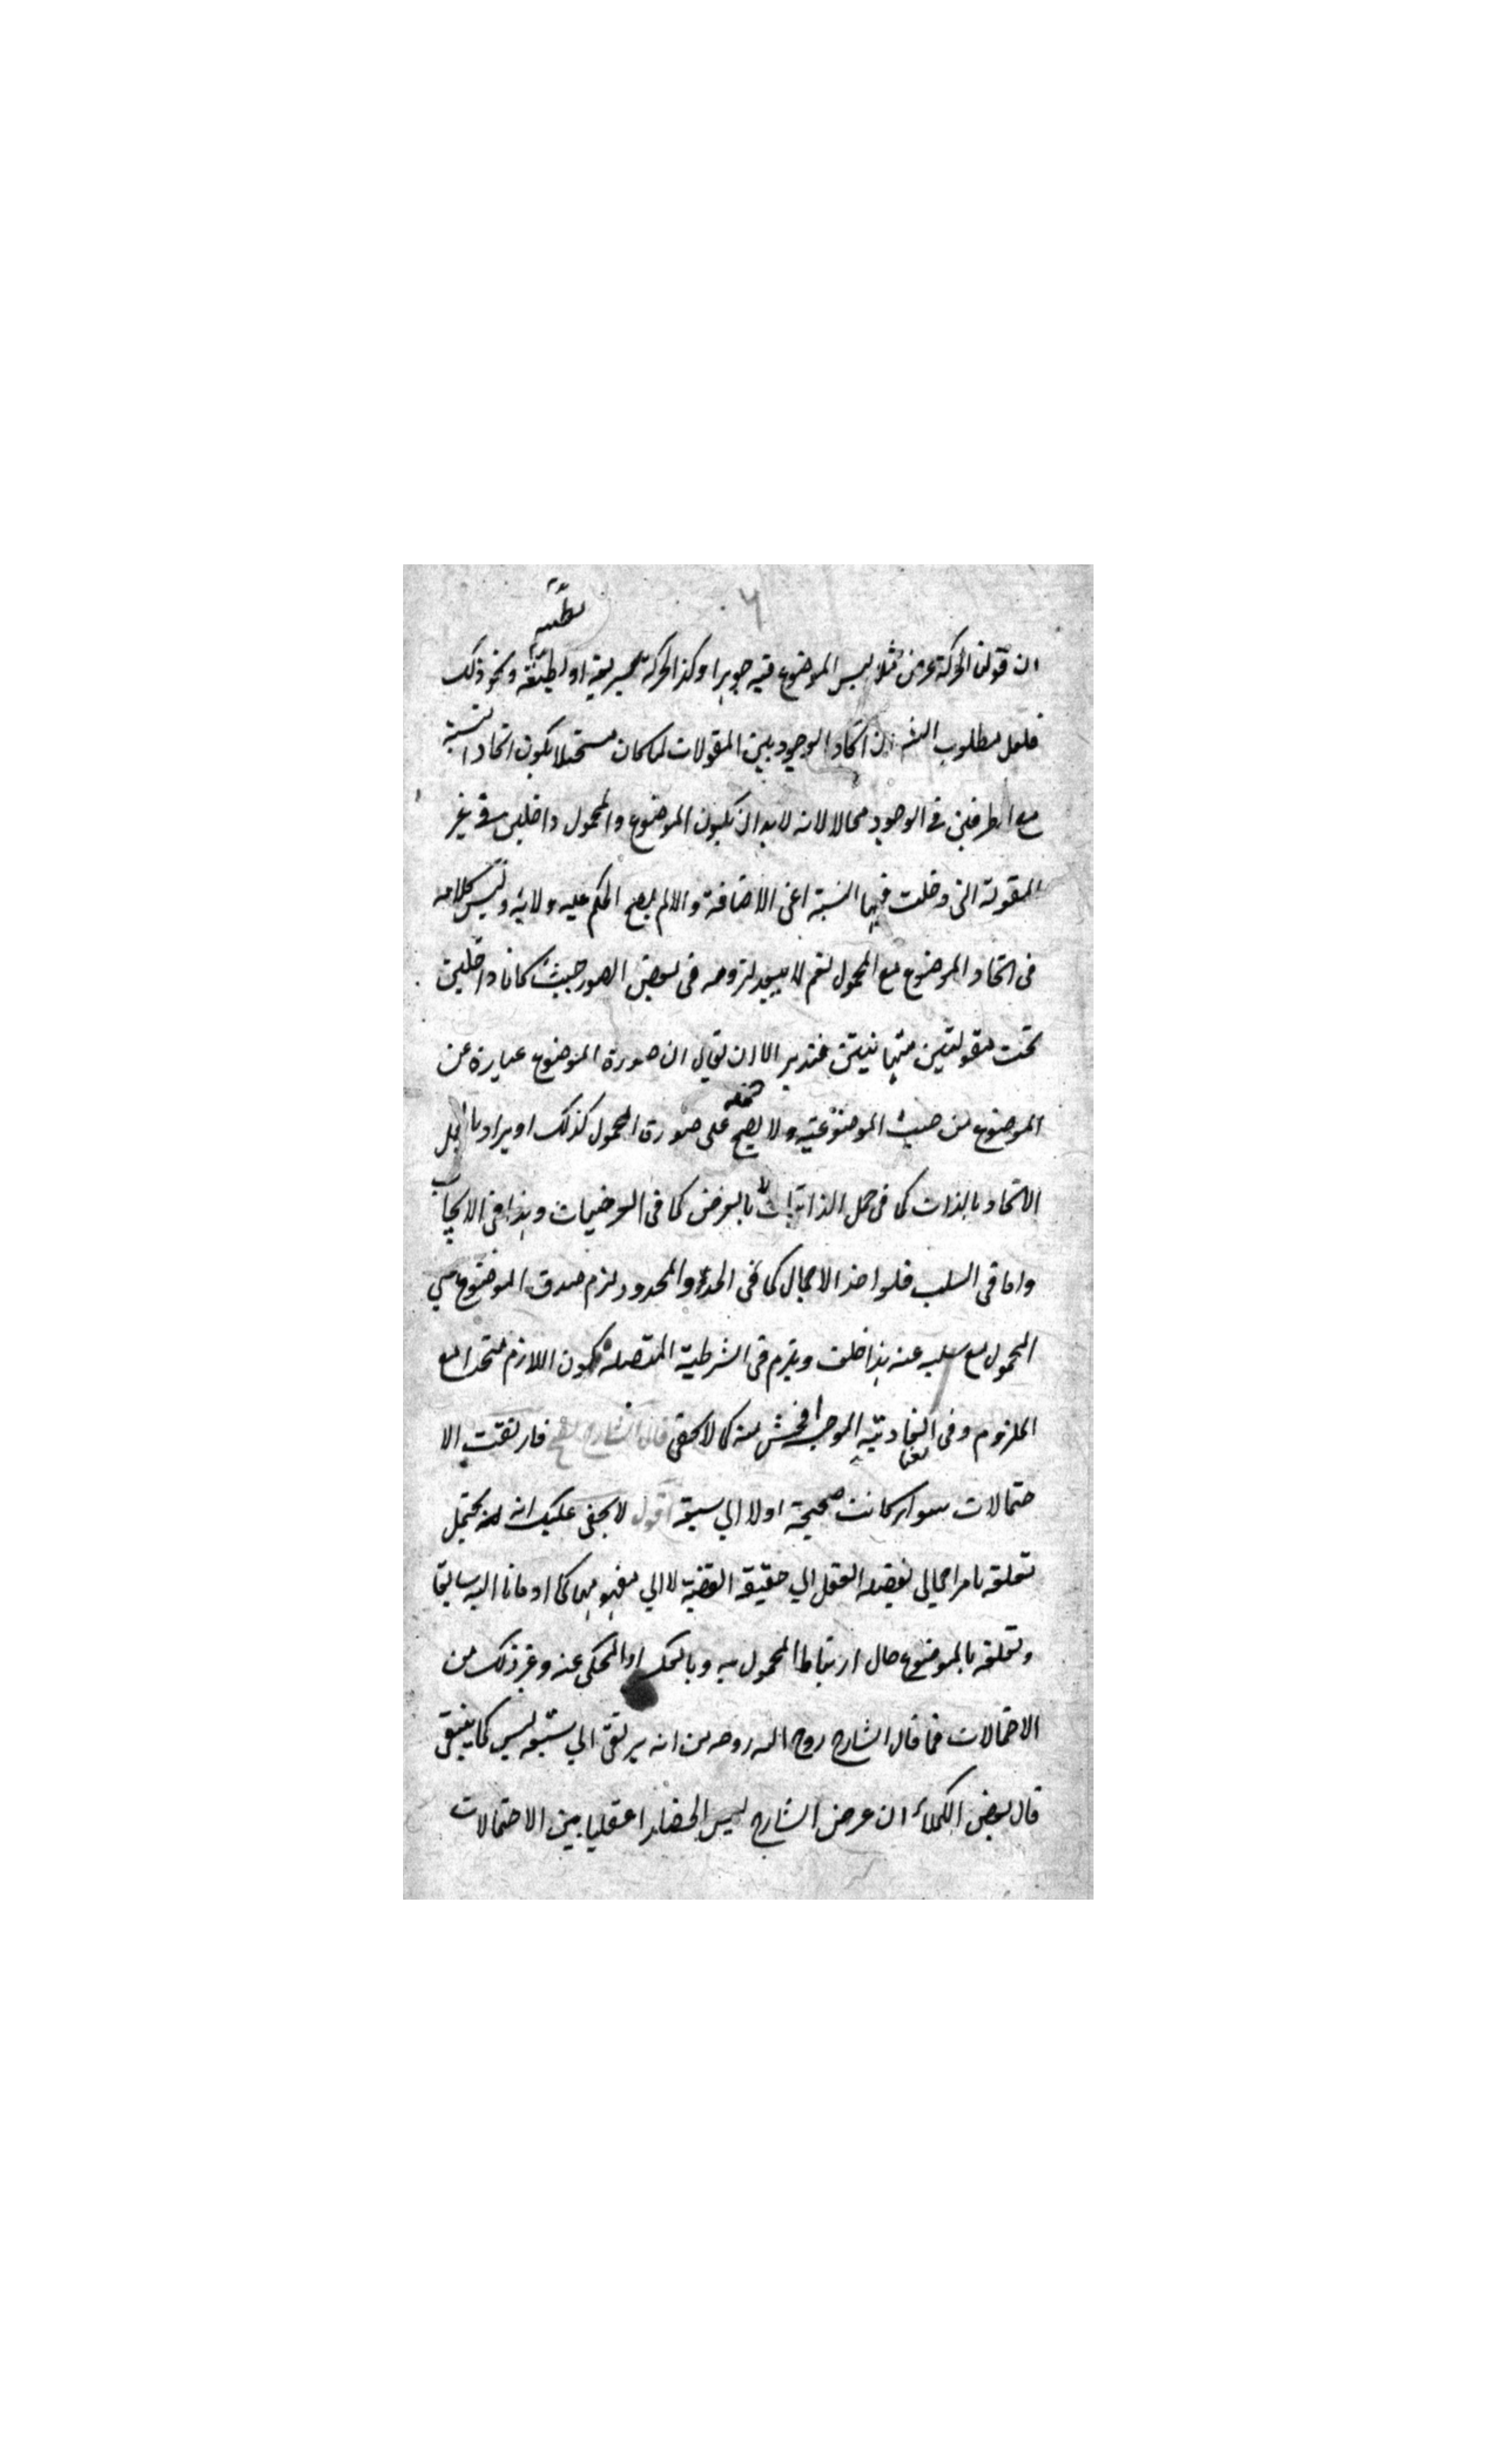 ٦
بطيئة
ان قولنا الحركة عرض مثلا ليس الموضوع فيه جوهرا وكذا الحركة سريعة او بطيئة ونحو ذلك
فلعل مطلوب ان اتحاد الوجود بين المقولات لما كان مستحيلا يكون اتحاد النسبة
مع الطرفين فى الوجود محالا لانه لا بد ان يكون الموضوع والمحمول داخلين فى غير
المقولة التى دخلت فيها النسبة اعنى الاضافة والا لم يصح الحكم عليه ولا به وليس كلامه
فى اتحاد الموضوع مع المحمول نعم لا يبعد لزومه فى بعض الصور حيث كانا داخلين
تحت مقولتين متباينتين فتدبر الا ان يقال ان صورة الموضوع عبارة عن
الموضوع من حيث الموضوعية ولا يصح حمله على صورة المحمول كذلك او يراد بالحمل
الاتحاد بالذات كما فى حمل الذاتيات لا بالعرض كما فى العرضيات وهذا فى الايجاب
واما فى السلب فلو اخذ الاجمال كما فى الحد والمحدود لزم صدق الموضوع على
المحمول مع سلبه عنه هذا خلف ويلزم فى الشرطية المتصلة كون اللازم متحدا مع
الملزوم وفى العنادية الموجبة افحش منه كما لا يخفى قال الشارح فارتقت الا
حتمالات سواء كانت صحيحة اولا الى سبعة اقول لا يخفى عليك انه يحتمل
تعلقه بامر اجمالى يفصله العقل الى حقيقة القضية لا الى مفهومها كما اومانا اليه سابقا
وتعلقه بالموضوع حال ارتباط المحمول به وبالحكاية او المحكى عنه وغير ذلك من
الاحتمالات فما قال الشارح روح الله روحه من انه يرتقى الى سبعة ليس كما ينبغى
قال بعض الكملاء ان غرض الشارح ليس انحصارا عقليا بين الاحتمالات